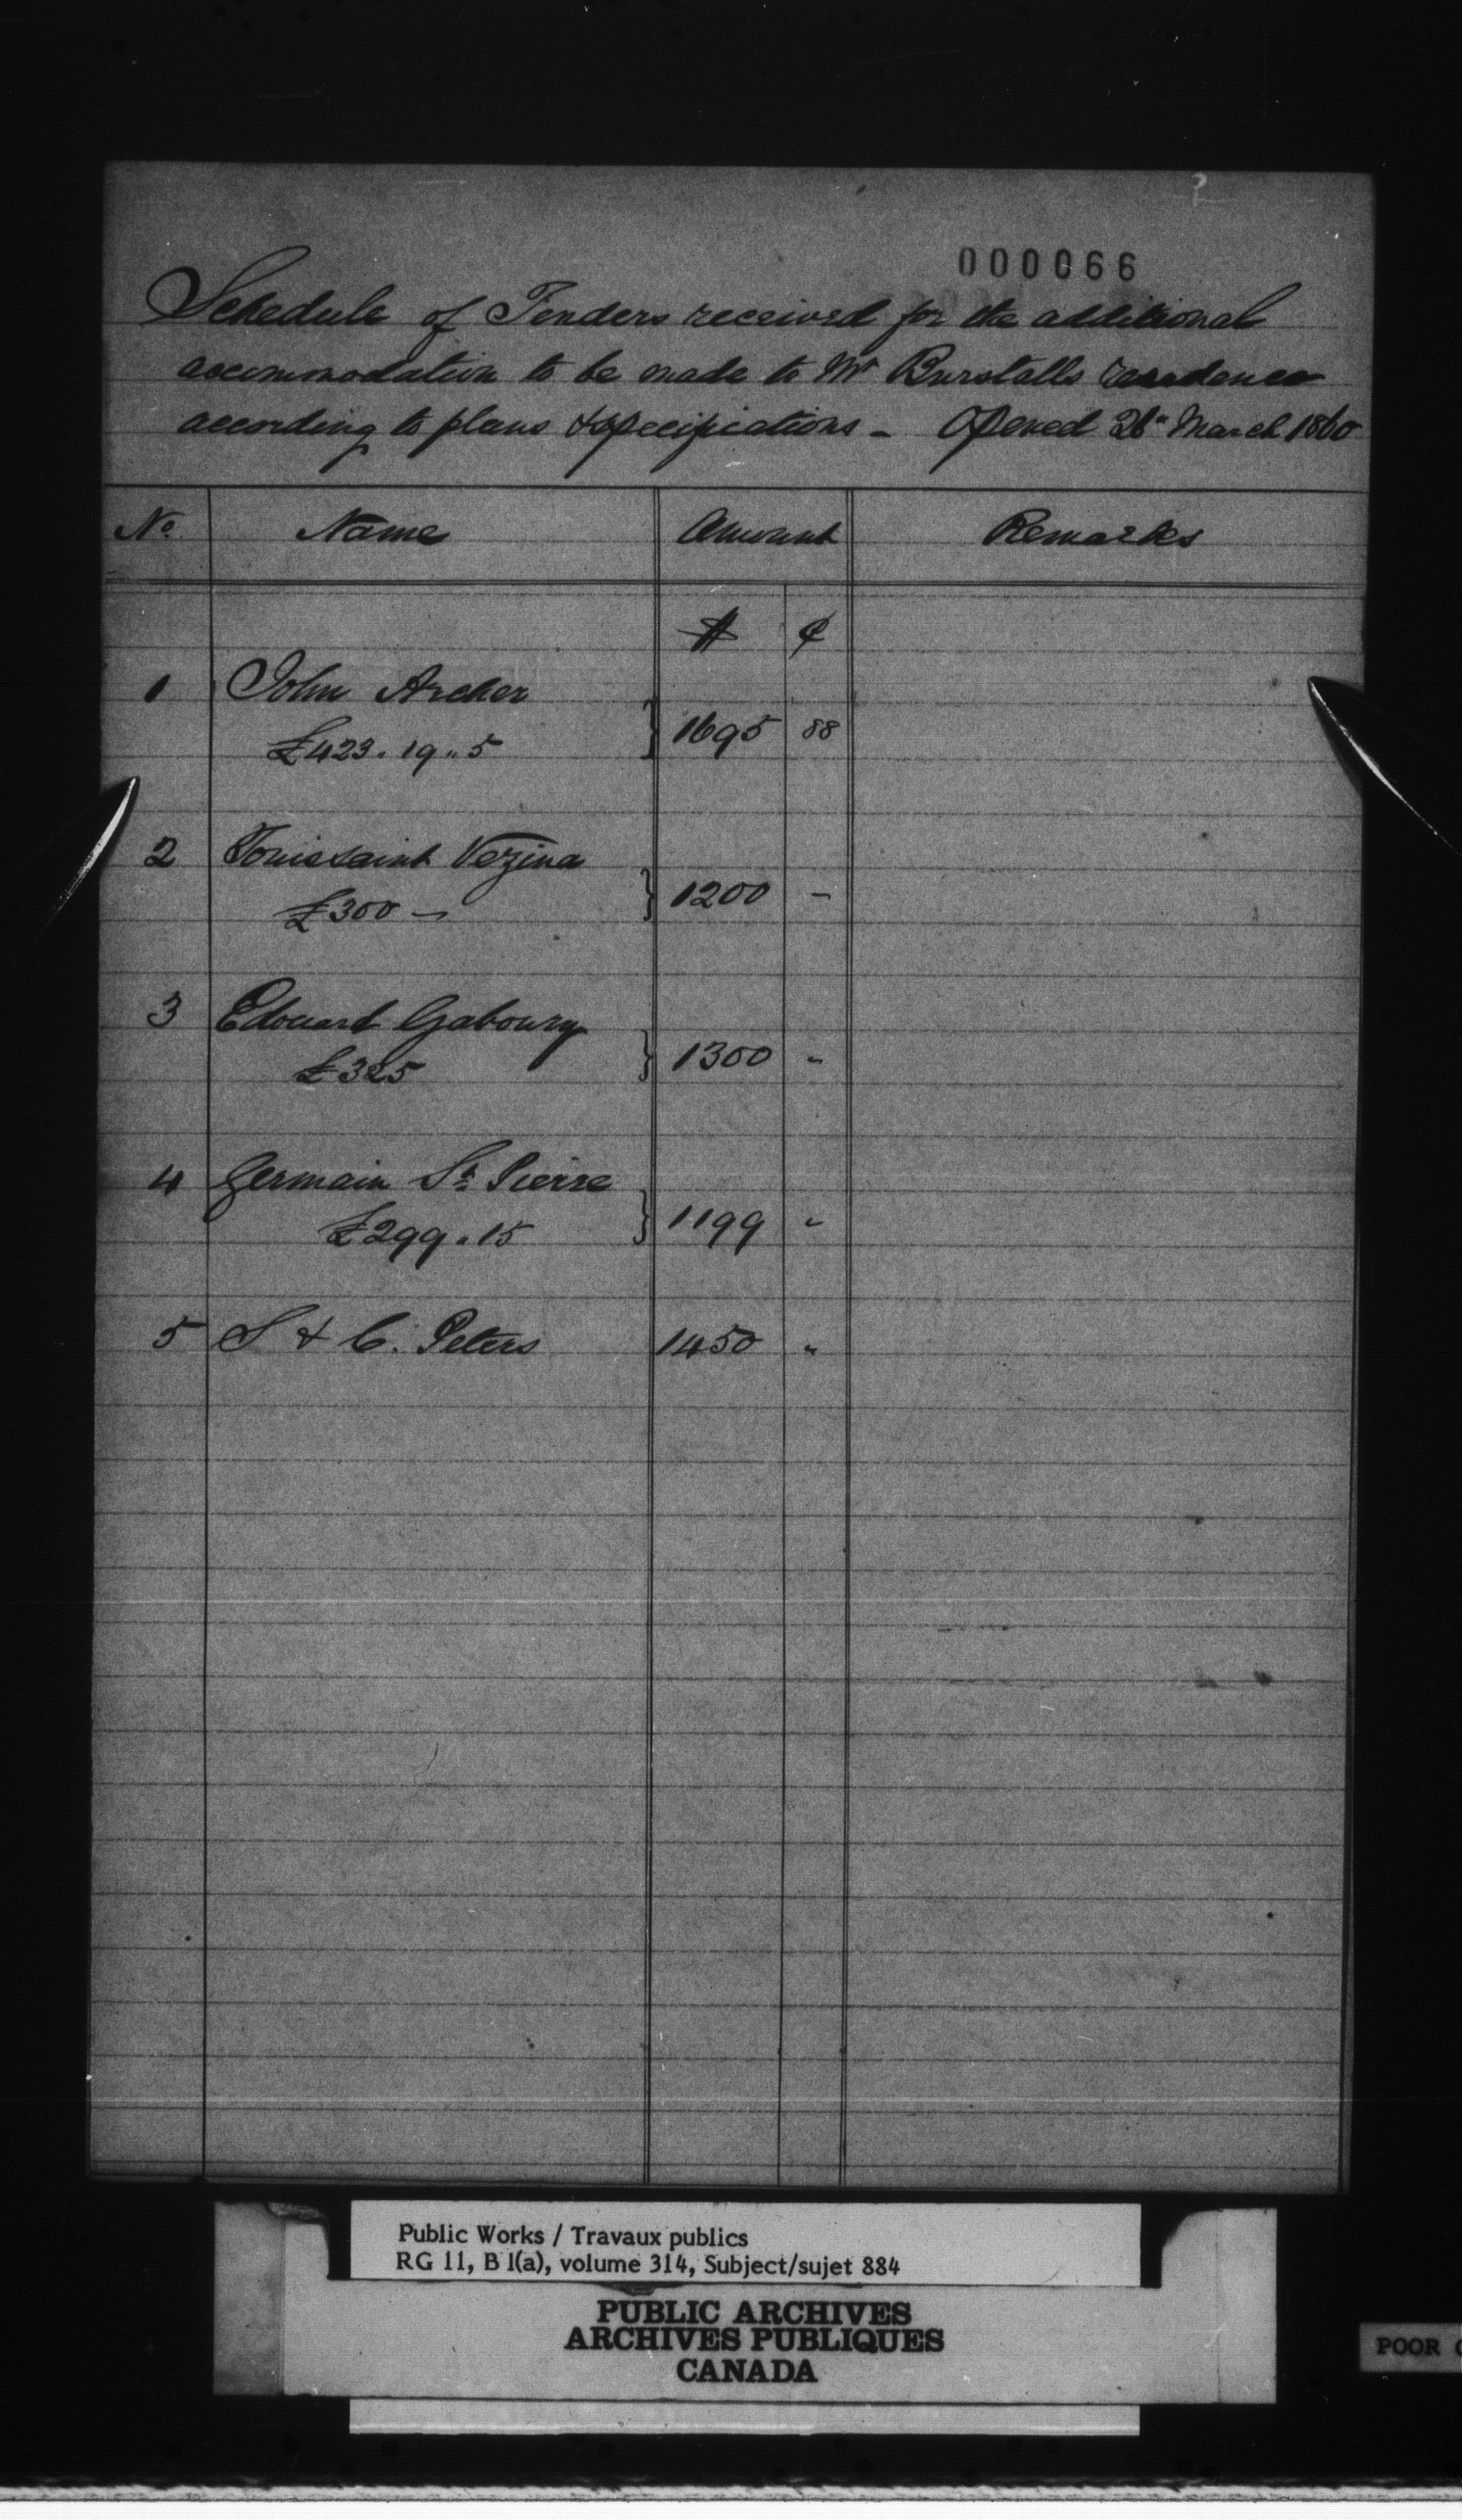 000066
Schedule of Tenders received for the additional
accommodation to be made to Mr Burstalls residence
according to plans & specifications - Opened 26" March 1860
No. Name Amount Remarks
$ ¢
1 John Archer
£423. 19.. 5 } 1695 88
2 Touissaint Vezina
£300 - } 1200 -
3 Edouard Gaboury
£325 } 1300 "
4 Germain St. Pierre
£299. 15 } 1199 "
5 S & C. Peters 1450 "
Public Works / Travaux publics
RG 11, B 1(a), volume 314, Subject/sujet 884
PUBLIC ARCHIVES
ARCHIVES PUBLIQUES
CANADA
POOR